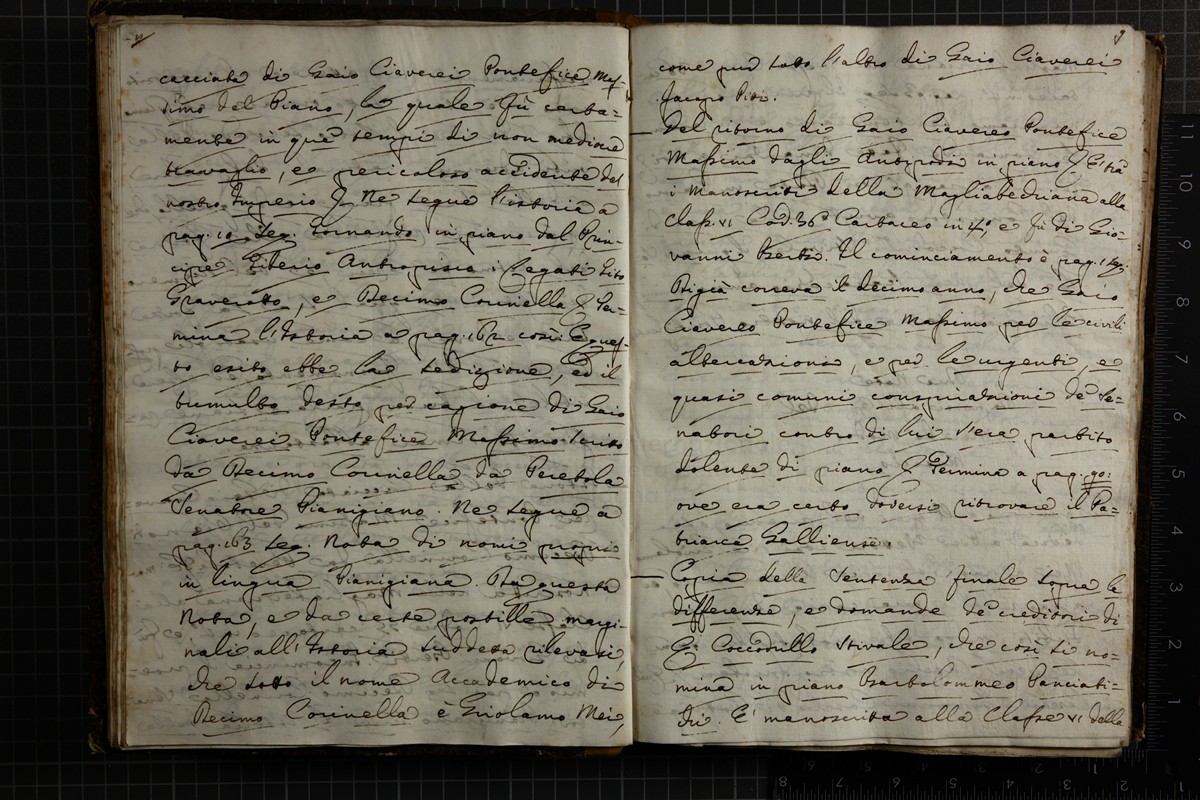 cacciata di Gaio Ciaverei Pontefice Mas-
simo del Piano, la quale fù certa=
mente in què tempi di non mediocre
travaglio, e pericoloso accidente del
nostro Imperio & Ne segue l'istoria a
pag. 10. seg. Tornando in piano dal Prin-
cipe Tiberio i Legati Tito
Graveratto, e Decimo Corinella & Ter-
mina l'Istoria a pag. 162 così: E ques-
to esito ebbe la sedizione, ed il
tumulto desto per cagione di Gaio
Ciaverei Pontefice Massimo scritto
da Decimo Corinella da Peretola
Senatore Pianigiano. Ne segue a
pag. 163 seg. Nota di nomi proprj
in lingua Pianigiana. Da questa
Nota, e da certe postille margi-
nali all'Istoria suddetta rilevasi,
che sotto il nome Accademico di
Decimo Corinella è Girolamo Mei,
9
come pur sotto l'altro di Gaio Ciaverei
Jacopo Pitti.
— Del ritorno di Gaio Ciavereo Pontefice
Massimo dagli in piano & È trà
i Manoscritti della Magliabechiana alla
Class. VI Cod. 36 Cartaceo in 4°, e fù di Gio-
vanni Berti. Il cominciamento è pag. 1
Di già correva il decimo anno, che Gaio
Ciavereo Pontefice Massimo per le civili
altercazioni, e per le urgenti, e
quasi comuni conspirazioni de' Se-
natori contro di lui s'era partito
dolente di piano & Termina a pag. 90:
ove era certo doversi ritrovare il Pa-
triarca Galliense.
— Copia della Sentenza finale sopra le
differenze, e domande de' creditori di
Coccodrillo Stivale, che così si no-
mina in piano Bartolommeo Panciati-
chi. E' manoscritta alla Classe VI della